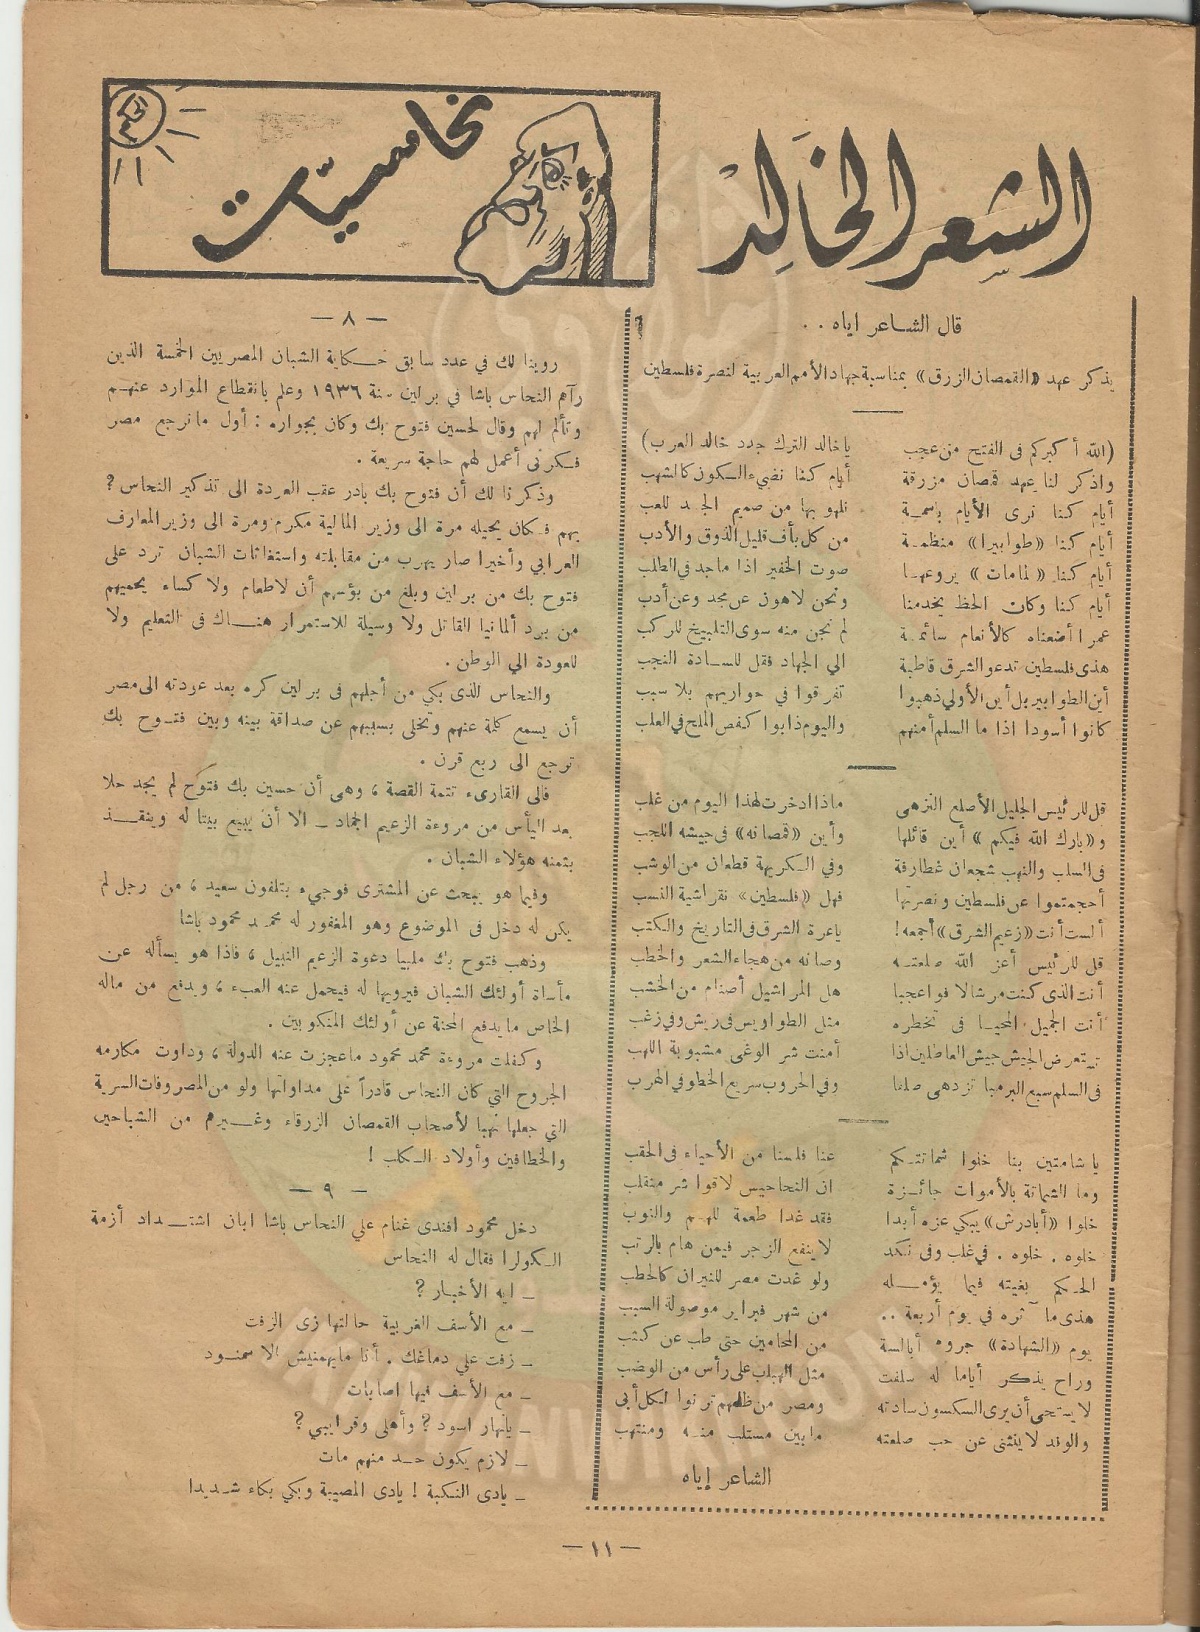 الشعر الخالد
قال الشاعر اياه . .
يذكر عهد «القمصان الزرق» بمناسبة جهاد الأمم العربية لنصرة فلسطين
(الله أكبركم فى الفتح من عجب ياخالد الترك جدد خالد العرب)
واذكر لنا عهد قمصان مزرقة أيام كنا نضيء السكون كالشهب
أيام كنا نرى الأيام باسمة نلهو بها من صميم الجد للعب
أيام كنا «طوابيرا» منظمة من كل بأف قليل الذوق والأدب
أيام كنا «لمامات» يروعها صوت الخفير اذا ماجد فى الطلب
أيام كنا وكان الحظ يخدمنا ونحن لاهون عن مجد وعن أدب
عمرا أضعناه كالأنعام سائمة لم نجن منه سوى التلبيخ للركب
هذى فلسطين تدعو الشرق قاطبة الي الجهاد فقل للسادة النجب
أين الطوابير بل أين الأولي ذهبوا تفرقوا في حواريهم بلا سبب
كانوا أسودا اذا ما السلم أمنهم واليوم ذابوا كفص الملح في العلب
قل للرئيس الجليل الأصلع النزهى ماذا ادخرت لهذا اليوم من غلب
و«بارك الله فيكم» أين قائلها وأين «قمصانه» فى جيشه اللجب
في السلب والنهب شجعان غطارفة وفي الكريهة قطعان من الوشب
أحجمتموا عن فلسطين ونصرتها فهل «فلسطين» نقراشية النسب
ألست أنت «زعيم الشرق» أجمعه! ياعرة الشرق في التاريخ والكتب
قل للرئيس أعز الله صلعته وصانه من هجاء الشعر والخطب
أنت الذى كنت مرشالا فوا عجبا هل المراشيل أصنام من الخشب
أنت الجميل المحيا فى تخطره مثل الطواويس فى ريش وفي زغب
تستعرض الجيش جيش العاطلين اذا أمنت شر الوغى مشبوبة اللهب
فى السلم سبع البرمبا تزدهى صلفا وفي الحروب سريع الخطو في الهرب
يا شامتين بنا خلوا شماتتكم عنا فلسنا من الأحياء فى الحقب
وما الشماتة بالأموات جائزة ان النحاحيس لاقوا شر منقلب
خلوا «أبادرش» يبكي عزه أبدا فقد غدا طعمة للهم والنوب
خلوه . خلوه . في غلب وفى نكد لا ينفع الزجر فيمن هام بالرتب
الحكم بغيته فيما يؤمله ولو غدت مصر للنيران كالحطب
هذى مآثره في يوم أربعة . . من شهر فبراير موصولة السبب
يوم «الشهادة» جروه أبالسة من المحامين حتى طب عن كثب
وراح يذكر أياما له سلفت مثل الهباب على رأس من الوضب
لا يستحى أن يرى السكسون سادته ومصر من ظلمهم ترنوا لكل أبى
والوفد لا ينثنى عن حب صلعته ما بين مستلب منه ومنتهب
الشاعر إياه
نحاسيات
الحكم
— ٨ —
روينا لك في عدد سابق حكاية الشبان المصريين الخمسة الذين
رآهم النحاس باشا في برلين سنة ١٩٣٦ وعلم بانقطاع الموارد عنهم
وتألم لهم وقال لحسين فتوح بك وكان بجواره : أول ما نرجع مصر
فكرنى أعمل لهم حاجة سريعة .
وذكرنا لك أن فتوح بك بادر عقب العودة الى تذكير النحاس ?
بهم فكان يحيله مرة الى وزير المالية مكرم ومرة الى وزير المعارف
العرابي وأخيرا صار يهرب من مقابلته واستغاثات الشبان ترد على
فتوح بك من برلين وبلغ من بؤسهم أن لاطعام ولا كساء يحميهم
من برد ألمانيا القاتل ولا وسيلة للاستمرار هناك فى التعليم ولا
للعودة الي الوطن .
والنحاس الذى بكي من أجلهم فى برلين كره بعد عودته الى مصر
أن يسمع كلمة عنهم وتخلى بسببهم عن صداقة بينه وبين فتوح بك
ترجع الى ربع قرن .
فالى القارىء تتمة القصة ، وهى أن حسين بك فتوح لم يجد حلا
بعد اليأس من مروءة الزعيم الجماد – الا أن يبيع بيتا له وينقذ
بثمنه هؤلاء الشبان .
وفيما هو يبحث عن المشترى فوجيء بتلفون سعيد ، من رجل لم
يكن له دخل فى الموضوع وهو المغفور له محمد محمود باشا
وذهب فتوح بك ملبيا دعوة الزعيم النبيل ، فاذا هو يسأله عن
مأساة أولئك الشبان فيرويها له فيحمل عنه العبء ، ويدفع من ماله
الخاص ما يدفع المحنة عن أولئك المنكوبين .
وكفلت مروءة محمد محمود ماعجزت عنه الدولة ، وداوت مكارمه
الجروح التي كان النحاس قادراً على مداواتها ولو من المصروفات السرية
التي جعلها نهبا لأصحاب القمصان الزرقاء وغيرهم من الشباحين
والخطافين وأولاد الكلب !
— ٩ —
دخل محمود افندى غنام علي النحاس باشا ابان اشتداد أزمة
الكولرا فقال له النحاس
– ايه الأخبار ?
– مع الأسف الغربية حالتها زى الزفت
– زفت علي دماغك . أنا مايهمنيش الا سمنود
– مع الأسف فيها اصابات
– يانهار اسود ? وأهلى وقرايبي ?
– لازم يكون حد منهم مات
– يادى النكبة ! يادى المصيبة وبكي بكاء شديدا
— ١١ —